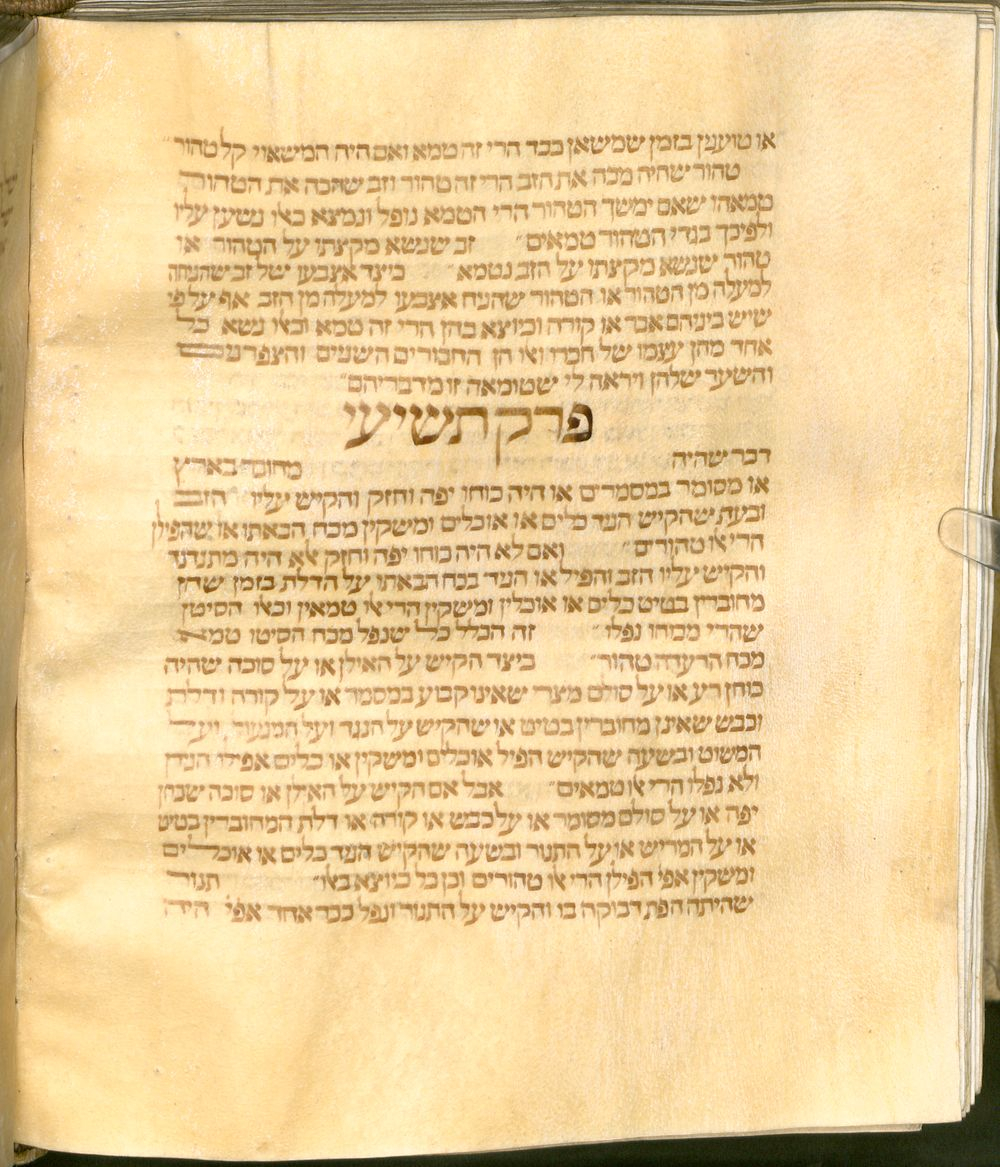 או טוענין בזמן שמשאן בכד הרי זה טמא ואם היה המישאוי קל טהור
טהור שהיה מכה את הזב הרי זה טהור וזב שהכה את הטהור
טמאהו שאם ימשך הטהור הרי הטמא נופל ונמצא כאלו נשען עליו
ולפיכך בגדי הטהור טמאים״ זב שנשא מקצתו על הטהור או
טהור שנשא מקצתו על הזב נטמא״ כיצד אצבעו של זב שהניחה
למעלה מן הטהור או הטהור שהניח אצבעו למעלה מן הזב אף על פי
שיש ביניהם אבן או קורה וכיוצא בהן הרי זה טמא וכאלו נשא כל
אחד מהן עצמו של חברו ואלו הן החבורים השנים והצפרנים
והשער שלהן ויראה לי שטומאה זו מדבריהם״
פרק תשיעי
דבר שהיה מחובר בארץ
או מסומר במסמרים או היה כוחו יפה וחזק והקיש עליו הזב
ובעת שהקיש העד כלים או אוכלים ומשקין מכח הבאתו או שהפילן
הרי אלו טהורים״ ואם לא היה כוחו יפה וחזק אלא היה מתנדנד
והקיש עליו הזב והפיל או העד בכח הבאתו על הדלת בזמן שהן
מחוברין בטיט כלים או אוכלין ומשקין הרי אלו טמאין וכאלו הסיטן
שהרי מכוחו נפלו״ זה הכלל כל שנפל מכח הסיטו טמא
מכח הרעדה טהור״ כיצד הקיש על האילן או על סוכה שהיה
כוחן רע או על סולם מצרי שאינו קבוע במסמר או על קורה ודלת
וכבש שאינן מחוברין בטיט או שהקיש על הנגר ועל המנעול ועל
המשוט ובשעה שהקיש הפיל אוכלים ומשקין או כלים אפילו הנידן
ולא נפלו הרי אלו טמאים״ אבל אם הקיש על האילן או סוכה שכחן
יפה או על סולם מסומר או על כבש או קורה או דלת המחוברין בטיט
או על המריש או על התנור ובשעה שהקיש העד כלים או אוכלים
ומשקין אפי׳ הפילן הרי אלו טהורים וכן כל כיוצא באלו״ תנור
שהיתה הפת דבוקה בו והקיש על התנור ונפל ככר אחד אפי׳ היה